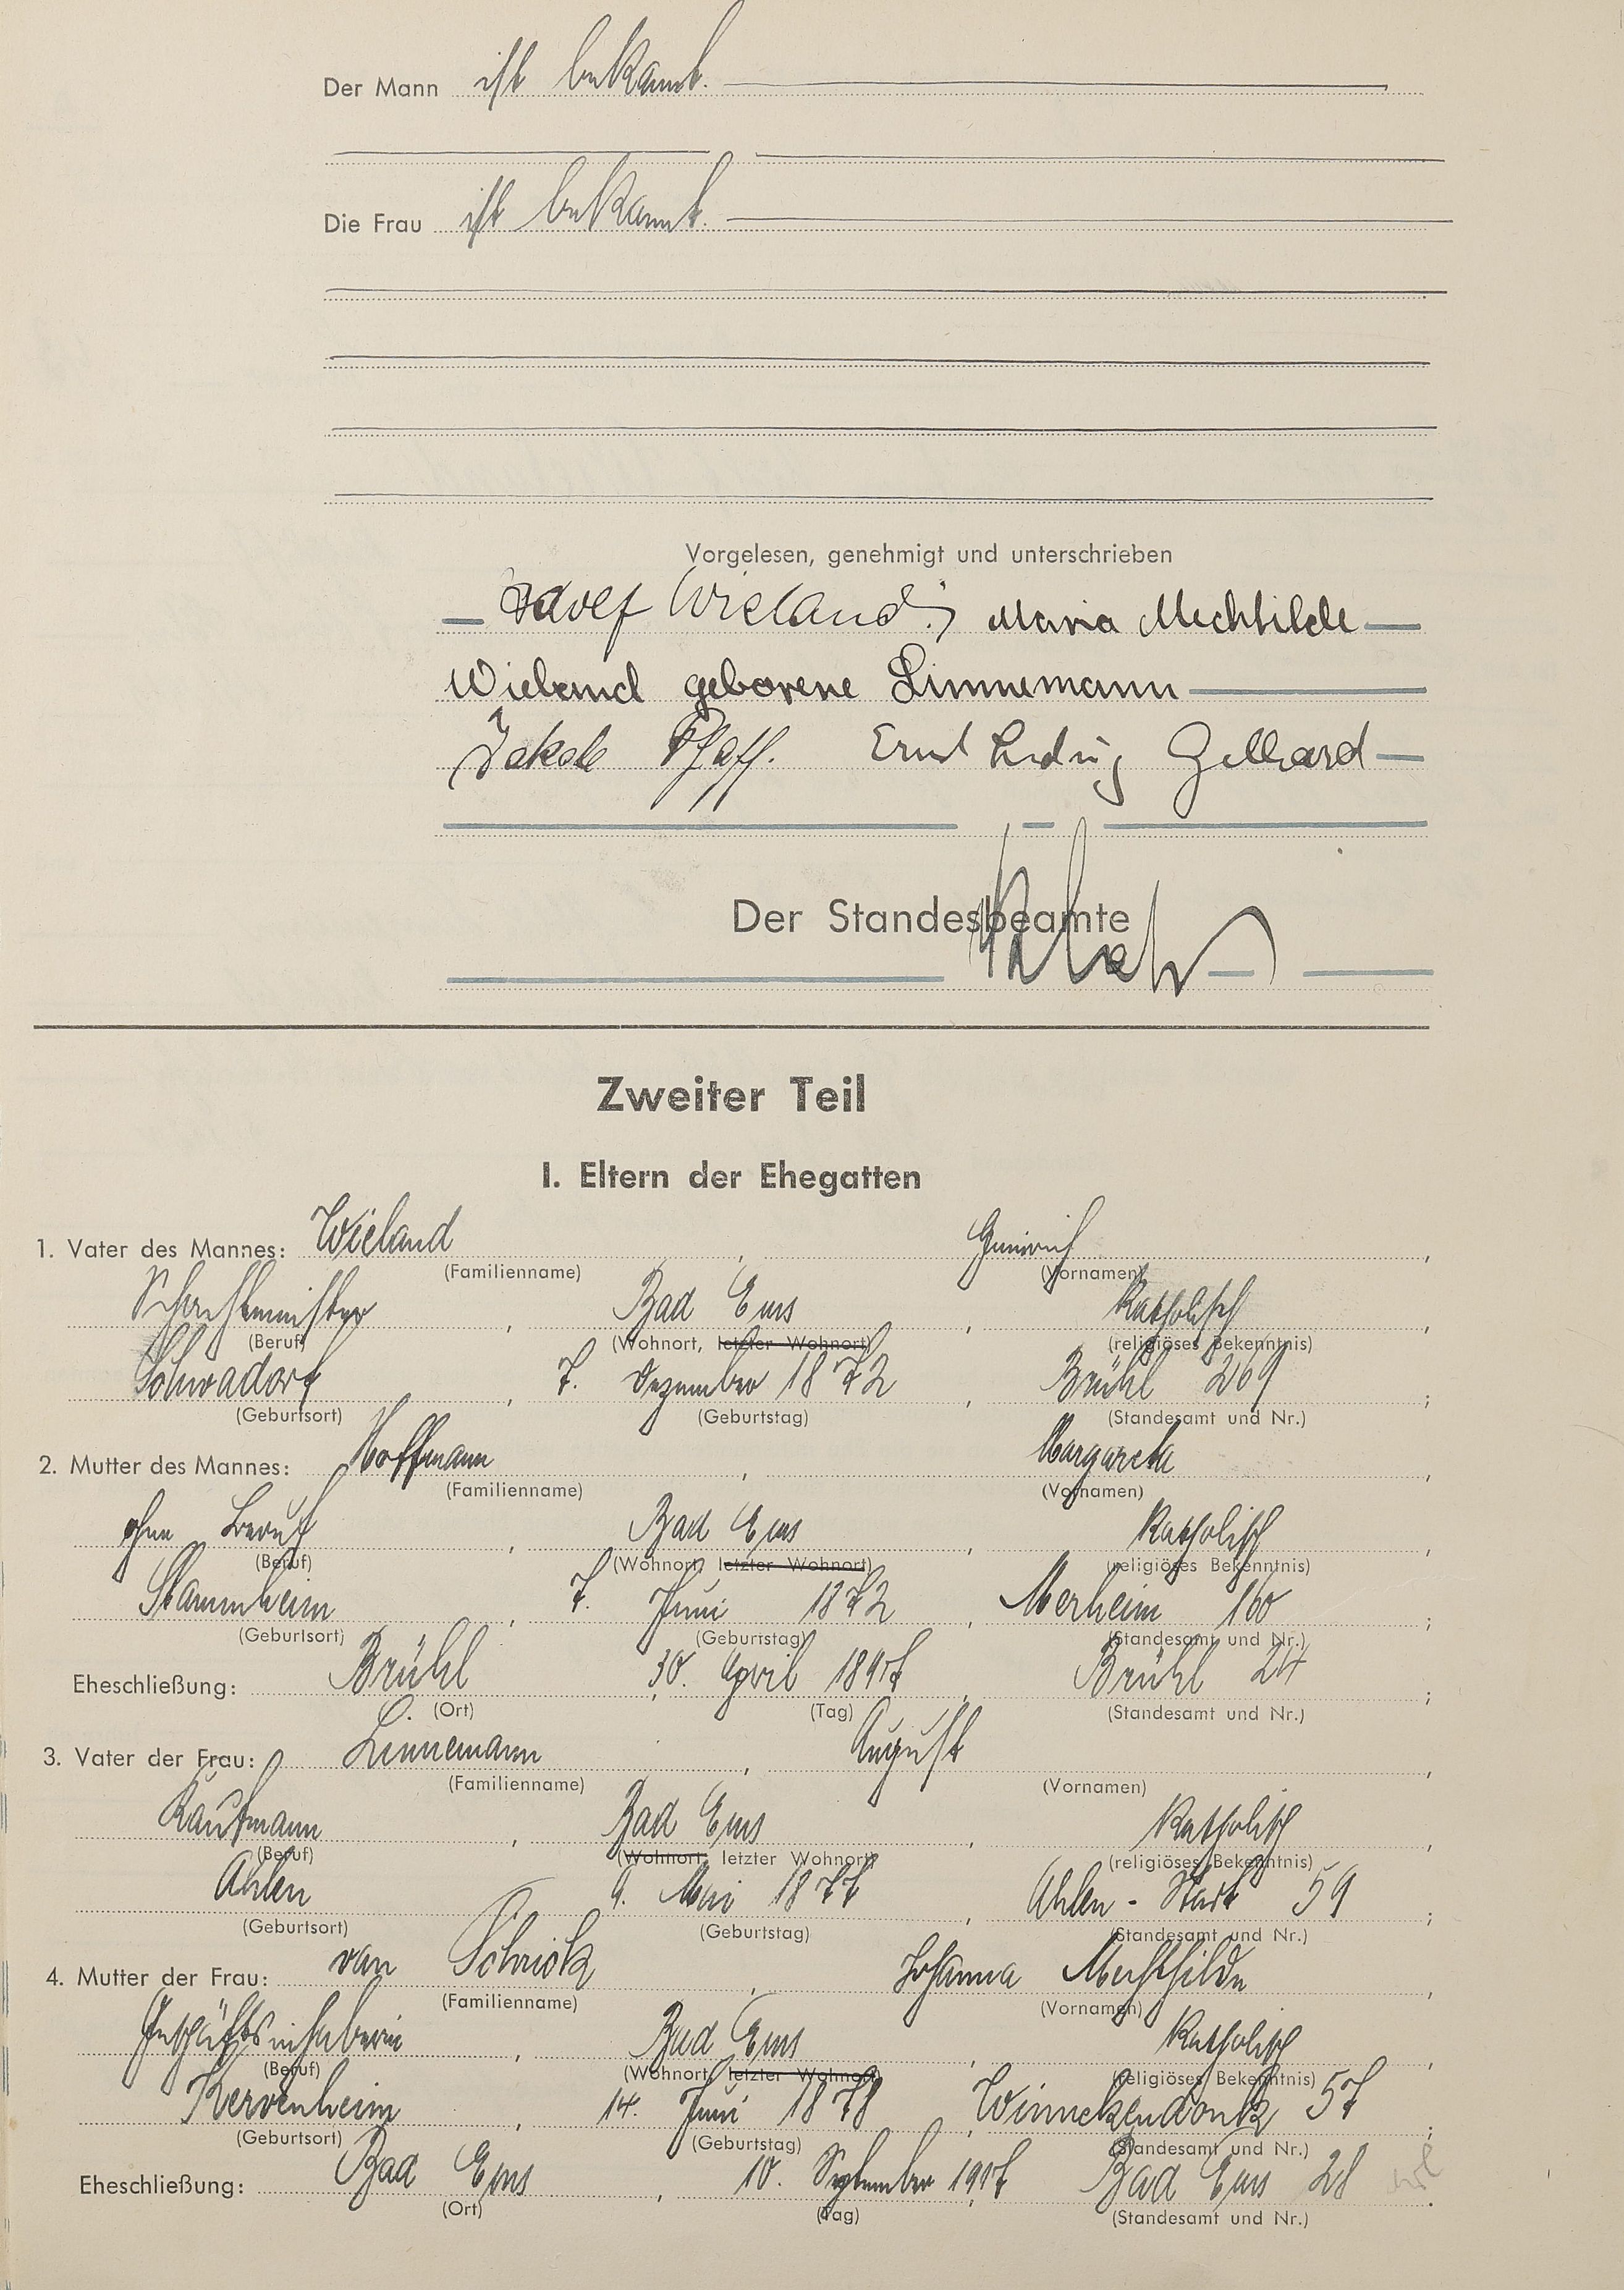 Der Mann ist bekannt.
Die Frau ist bekannt.
Vorgelesen, genehmigt und unterschrieben
Adolf Wieland; Maria Mechthilde
Wieland geborene Linnemann
Jakob Pfaff. Ernst Ludwig Gebhard
Der Standesbeamte
Zweiter Teil
I. Eltern der Ehegatten
1. Vater des Mannes: Wieland, Heinrich,
(Familienname) (Vornamen)
Schachtmeister, Bad Ems, Katholisch,
(Beruf) (Wohnort, letzter Wohnort) (religiöses Bekenntnis)
Schwadorf, 7. Dezember 1872, Brühl 269;
(Geburtsort) (Geburtstag) (Standesamt und Nr.)
2. Mutter des Mannes: Hoffmann, Margareta,
(Familienname) (Vornamen)
ohne Beruf, Bad Ems, Katholisch,
(Beruf) (Wohnort, letzter Wohnort) (religiöses Bekenntnis)
Stammheim, 7. Juni 1872, Merheim 160;
(Geburtsort) (Geburtstag) (Standesamt und Nr.)
Eheschließung: Brühl, 30. April 1897, Brühl 24;
(Ort) (Tag) (Standesamt und Nr.)
3. Vater der Frau: Linnemann, August,
(Familienname) (Vornamen)
Kaufmann, Bad Ems, Katholisch,
(Beruf) (Wohnort, letzter Wohnort) (religiöses Bekenntnis)
Ahlen, 9. Mai 1877, Ahlen - Stadt 59;
(Geburtsort) (Geburtstag) (Standesamt und Nr.)
4. Mutter der Frau: van Schrick, Johanna Mechthilde,
(Familienname) (Vornamen)
Geschäftsinhaberin, Bad Ems, Katholisch,
(Beruf) (Wohnort, letzter Wohnort) (religiöses Bekenntnis)
Kervenheim, 14. Juni 1878, Winnekendonk 57;
(Geburtsort) (Geburtstag) (Standesamt und Nr.)
Eheschließung: Bad Ems, 10. September 1907, Bad Ems 28.
(Ort) (Tag) (Standesamt und Nr.)